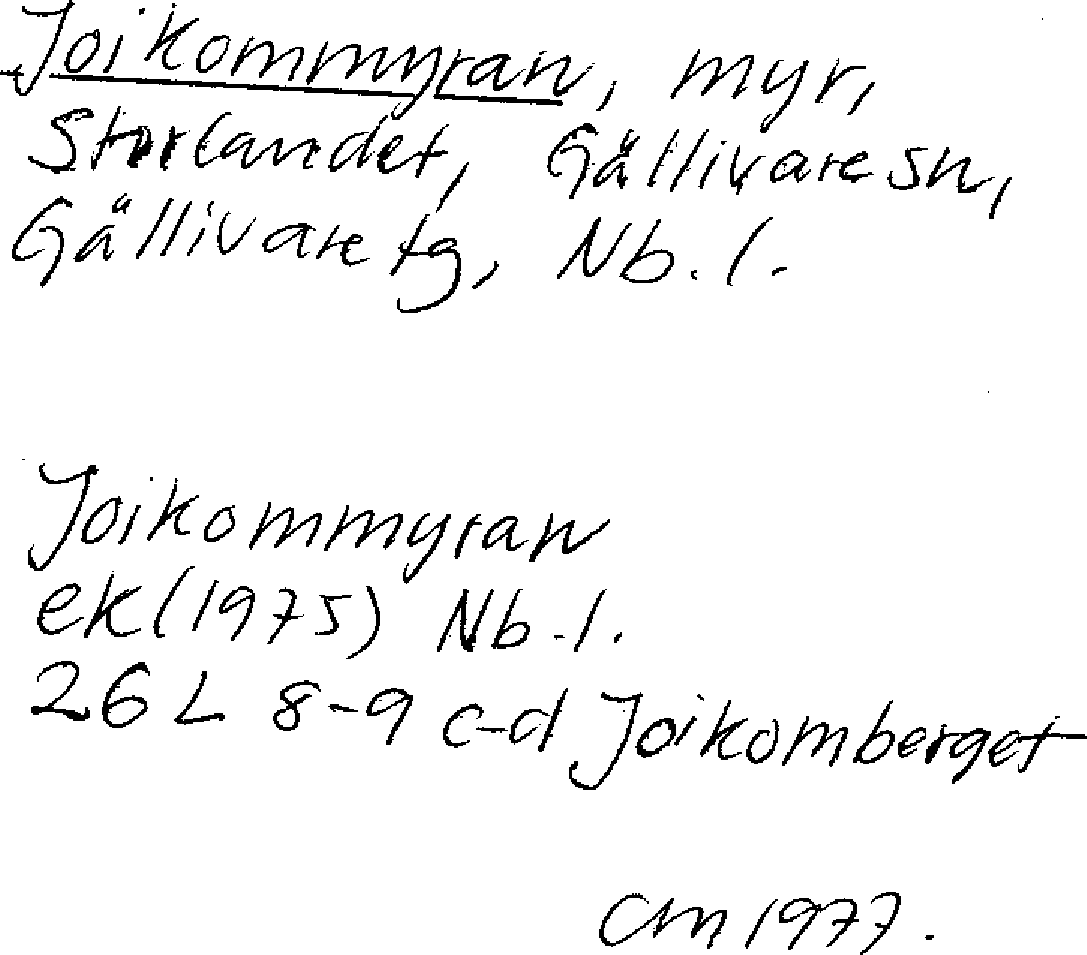 Joikommyran, myr,
Storlandet, Gällivare sn,
Gällivare tg, Nb. l.
Joikommyran
ek (1975) Nb. l.
26 L 8-9 c-d Joikomberget
CM 1977.